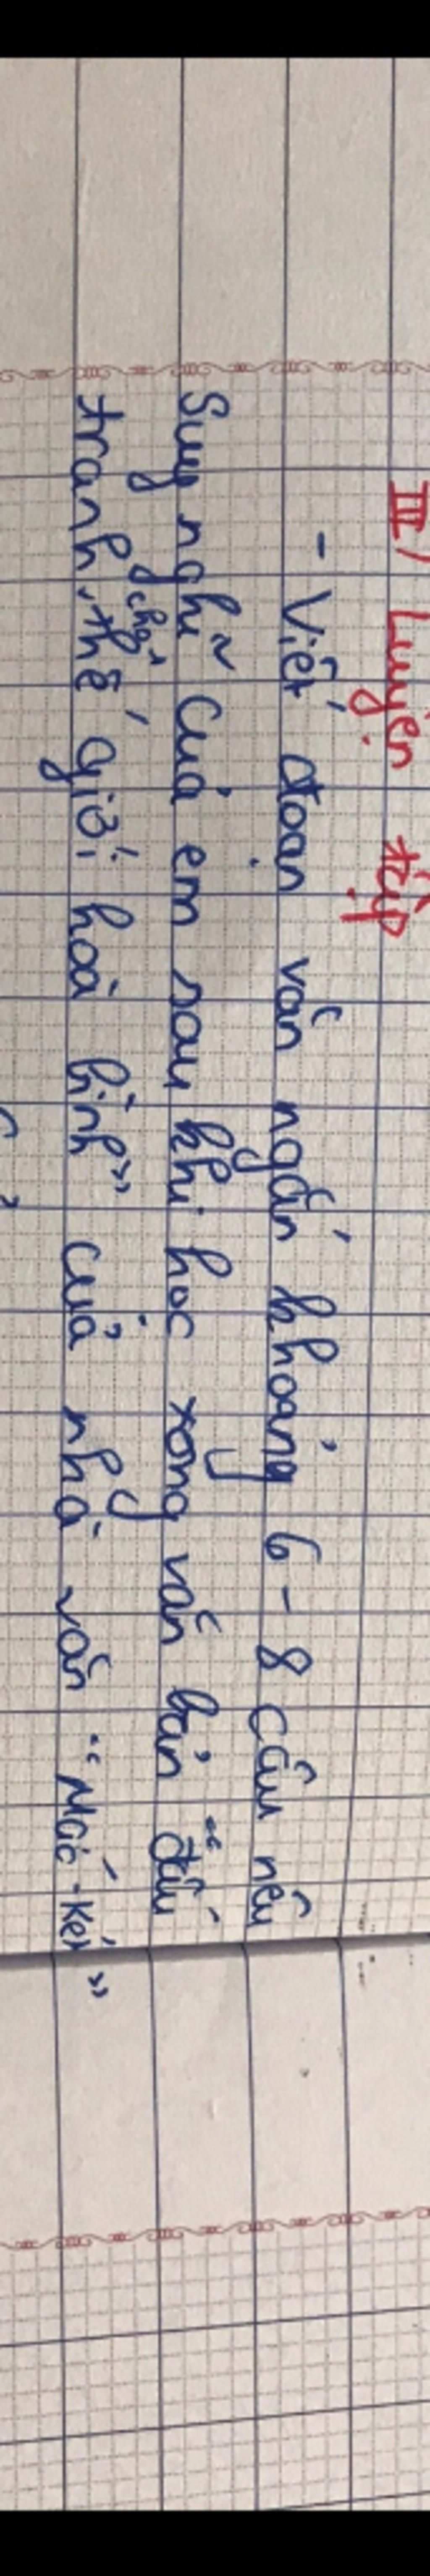 III/ Luyện tập
- Viết đoạn văn ngắn khoảng 6 - 8 câu nêu
Suy nghĩ của em sau khi học xong văn bản "đấu
tranh cho 1 thế giới hoà bình" của nhà văn "Mác-két"